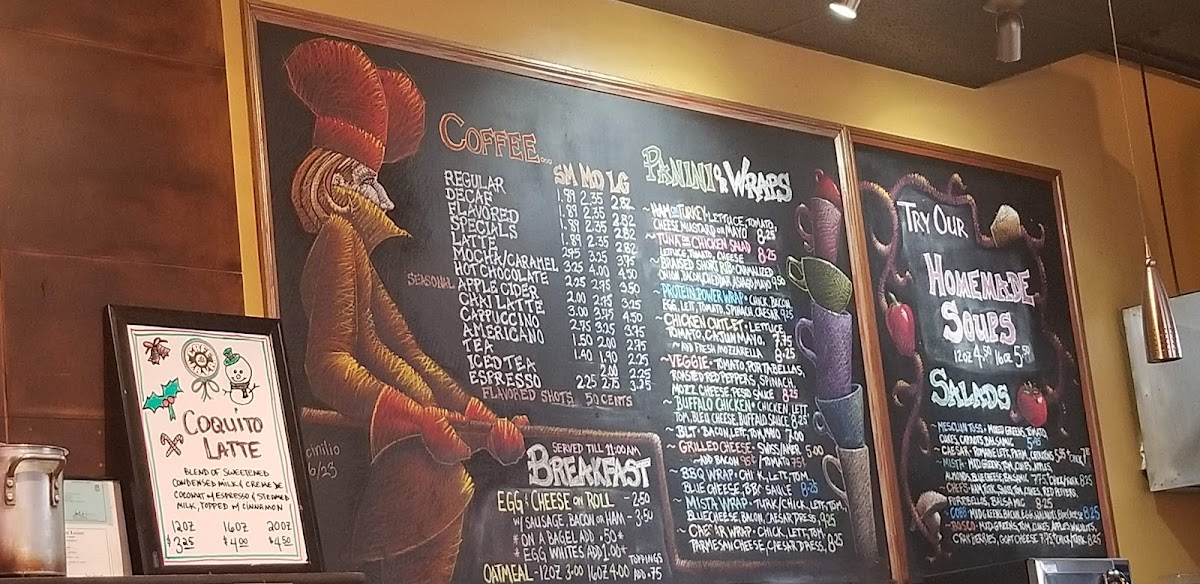 COQUITO
LATTE
BLEND OF SWEETENED
CONDENSED MILK & CREME DE
COCONUT W ESPRESSO & STEAMED
MILK, TOPPED W CINNAMON
12OZ 16OZ 20OZ
$3.25 $4.00 $4.50
COFFEE...
SM MD LG
REGULAR 1.89 2.35 2.82
DECAF 1.89 2.35 2.82
FLAVORED 1.89 2.35 2.82
SPECIALS 1.89 2.35 2.82
LATTE 2.95 3.25 3.75
MOCHA/CARAMEL 3.25 4.00 4.50
HOT CHOCOLATE 2.25 2.95 3.50
SEASONAL APPLE CIDER 2.00 2.75 3.25
CHAI LATTE 3.00 3.75 4.50
CAPPUCCINO 2.75 3.25 3.75
AMERICANO 1.50 2.00 2.75
TEA 1.40 1.90 2.25
ICED TEA 2.00 2.25
ESPRESSO 2.25 2.75 3.25
FLAVORED SHOTS 50 CENTS
SERVED TILL 11:00AM
BREAKFAST
EGG & CHEESE ON ROLL - 2.50
W/ SAUSAGE, BACON OR HAM - 3.50
* ON A BAGEL ADD .50 *
* EGG WHITES ADD 1.00 *
OATMEAL - 12OZ 3.00 16OZ 4.00 TOPPINGS ADD .75
PANINI OR WRAPS
~ HAM OR TURKEY • LETTUCE, TOMATO,
CHEESE, MUSTARD OR MAYO 8.25
~ TUNA OR CHICKEN SALAD
LETTUCE, TOMATO, CHEESE 8.25
~ BRAISED SHORT RIB •
ONION, MAYO 9.50
~ PROTEIN POWER WRAP • CHICK, BACON,
EGG, LETT, TOMATO, SPINACH, CAESAR 9.25
~ CHICKEN CUTLET • LETTUCE
TOMATO, CAJUN MAYO, 7.75
~ AND FRESH MOZZARELLA 8.25
~ VEGGIE • TOMATO, PORTABELLAS,
ROASTED RED PEPPERS, SPINACH,
MOZZ CHEESE, PESTO SAUCE 8.25
~ BUFFALO CHICKEN • CHICKEN, LETT,
TOM, BLEU CHEESE, BUFFALO SAUCE 8.25
~ BLT • BACON, LETT, TOM, MAYO 7.00
~ GRILLED CHEESE • SWISS/AMER. 5.00
~ AND BACON 95¢ / TOMATO 75¢
~ BBQ WRAP • CHICK, LETT, TOM,
BLUE CHEESE, BBQ SAUCE 8.25
~ MISTA WRAP • TURK/CHICK, LETT, TOM,
BLUE CHEESE, BACON, CAESAR DRESS, 9.25
~ CAESAR WRAP • CHICK, LETT, TOM
PARMESAN CHEESE, CAESAR DRESS, 8.25
TRY OUR
HOMEMADE
SOUPS
12OZ 4.50 16OZ 5.50
SALADS
~ MESCLUN TOSS • MIXED GREENS, TOMATO
CUKES, CARROTS, BALSAMIC
~ CAESAR • ROMAINE LETT, PARM, CROUTONS,
~ MISTA • MIXD GREENS, TOM, CUKES, APPLES,
ALMONDS, BLUE CHEESE, BALSAMIC 7.75 CHICK/TURK 8.25
~ CHEFS • CUKES, RED PEPPERS,
PORTABELLAS, BALSAMIC 8.25
~ COBB • MIXD GREENS, BACON, EGG, BLUE CHEESE 8.25
~ BOSCO • MIXD GREENS, TOM, CUKES, APPLES, WALNUTS,
CRANBERRIES, GOAT CHEESE 7.75 CHICK/TURK 8.25